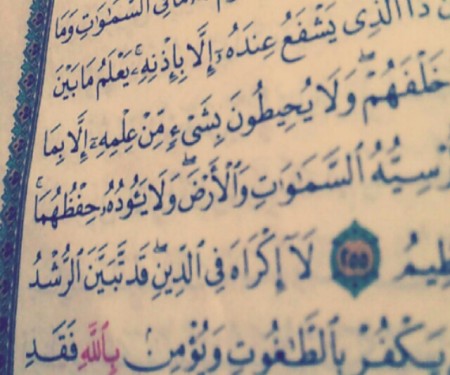 مَا فِي ٱلسَّمَٰوَٰتِ وَمَا
ذَا ٱلَّذِى يَشْفَعُ عِندَهُۥٓ إِلَّا بِإِذْنِهِۦ ۚ يَعْلَمُ مَا بَيْنَ
خَلْفَهُمْ ۖ وَلَا يُحِيطُونَ بِشَىْءٍ مِّنْ عِلْمِهِۦٓ إِلَّا بِمَا
رْسِيُّهُ ٱلسَّمَٰوَٰتِ وَٱلْأَرْضَ ۖ وَلَا يَـُٔودُهُۥ حِفْظُهُمَا ۚ
ظِيمُ ٢٥٥ لَآ إِكْرَاهَ فِى ٱلدِّينِ ۖ قَد تَّبَيَّنَ ٱلرُّشْدُ
يَكْفُرْ بِٱلطَّٰغُوتِ وَيُؤْمِنۢ بِٱللَّهِ فَقَدِ